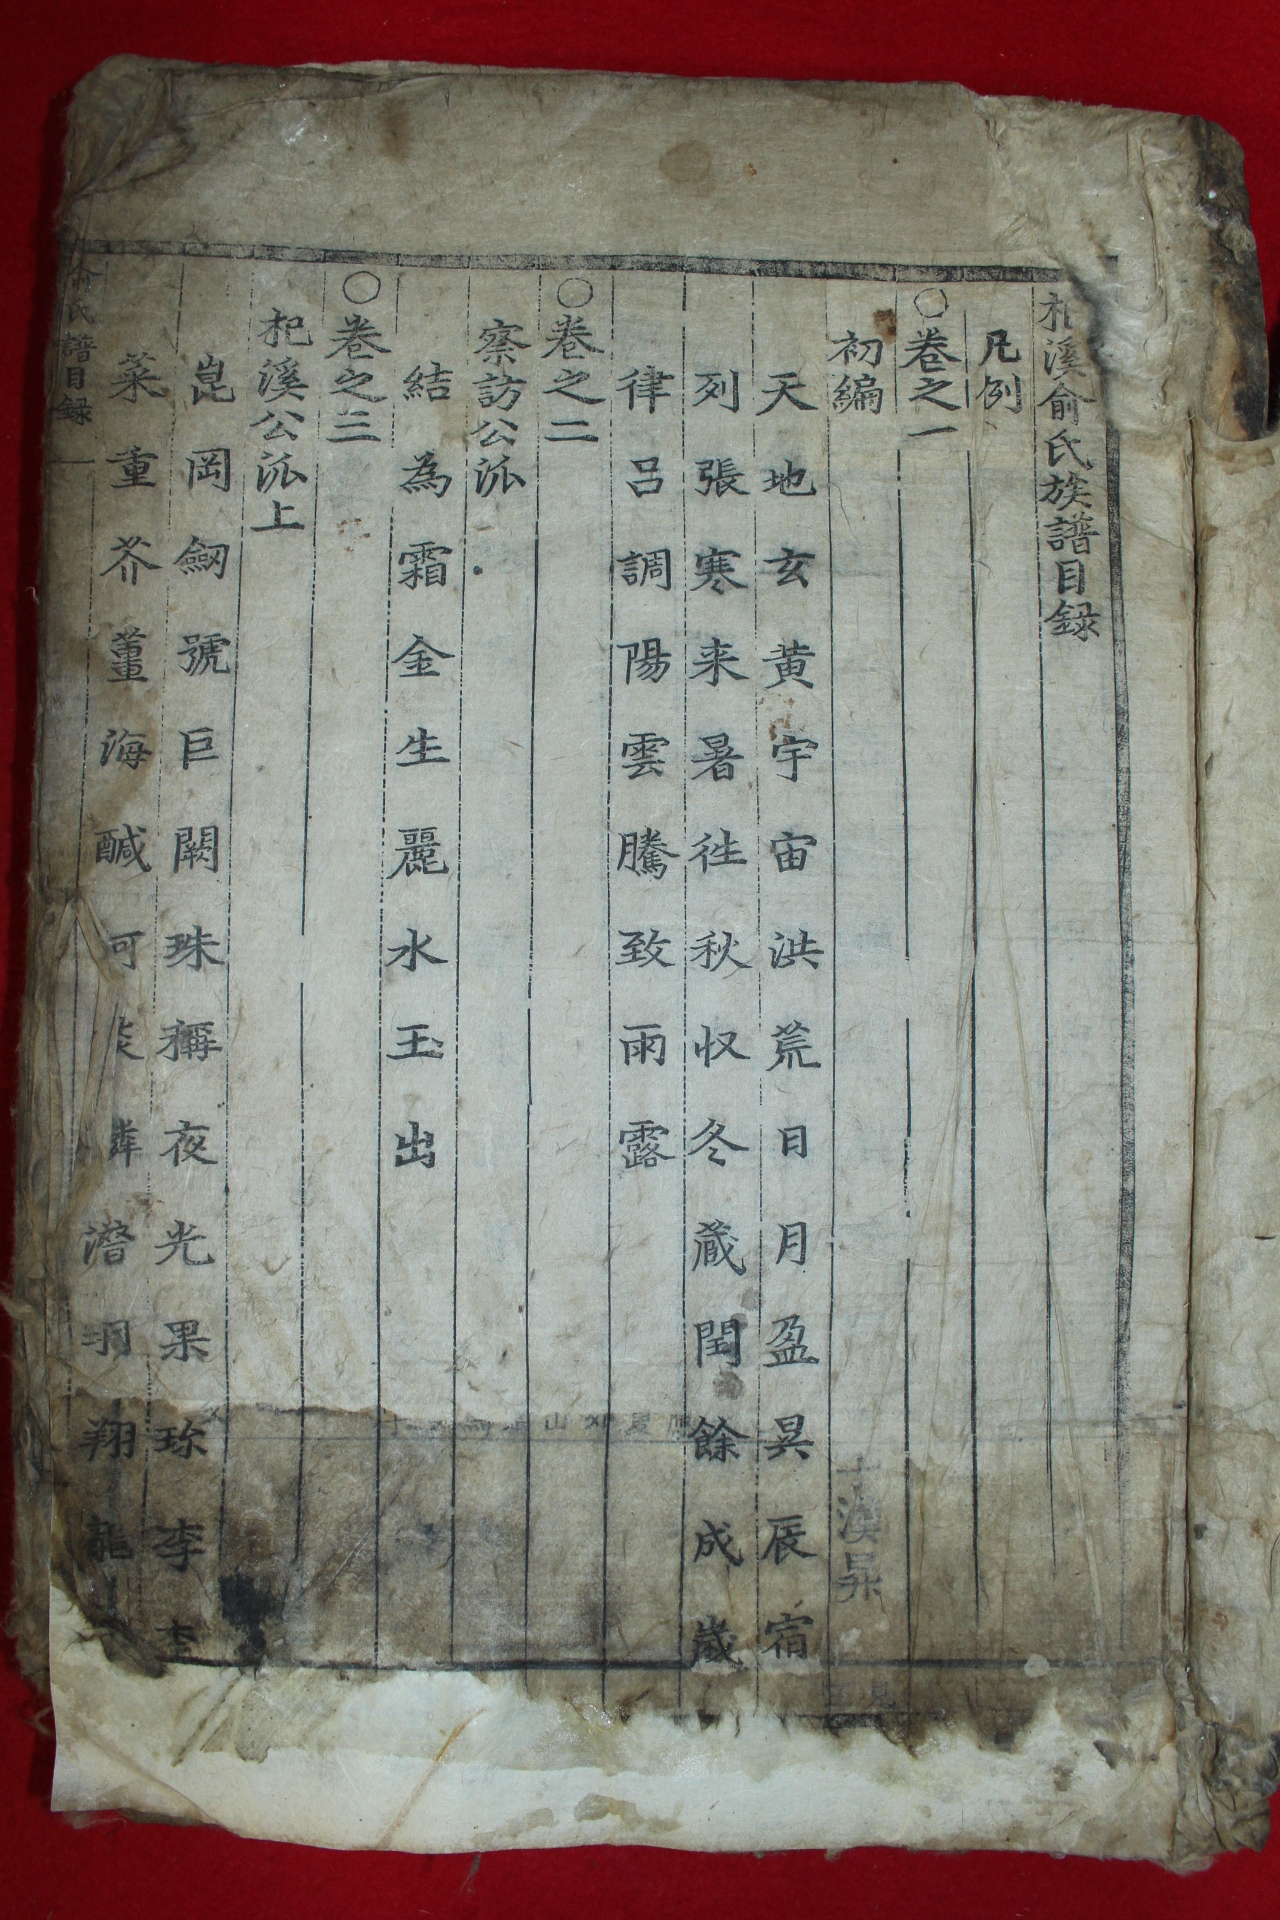 杞溪俞氏族譜目録
凡例
○卷之一
初編
天地玄黄宇宙洪荒日月盈昃辰宿
列張寒来暑徃秋収冬蔵閏餘成歲
律呂調陽雲騰致雨露
○卷之二
察訪公派
結為霜金生麗水玉出
○卷之三
杞溪公派上
崑岡劔號巨闕珠稱夜光果珎李柰
菜重芥薑海醎河淡鱗潛羽翔龍
俞氏譜目録